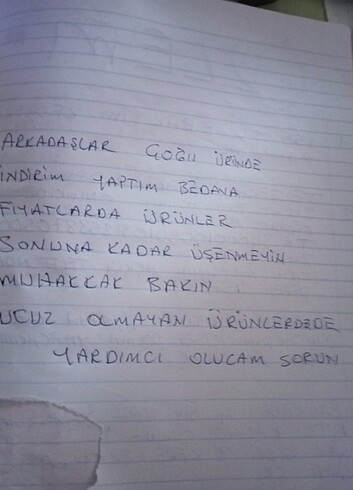 ARKADAŞLAR ÇOĞU ÜRÜNDE
İNDİRİM YAPTIM BEDAVA
FİYATLARDA ÜRÜNLER
SONUNA KADAR ÜŞENMEYİN
MUHAKKAK BAKIN
UCUZ OLMAYAN ÜRÜNLERDEDE
YARDIMCI OLUCAM SORUN